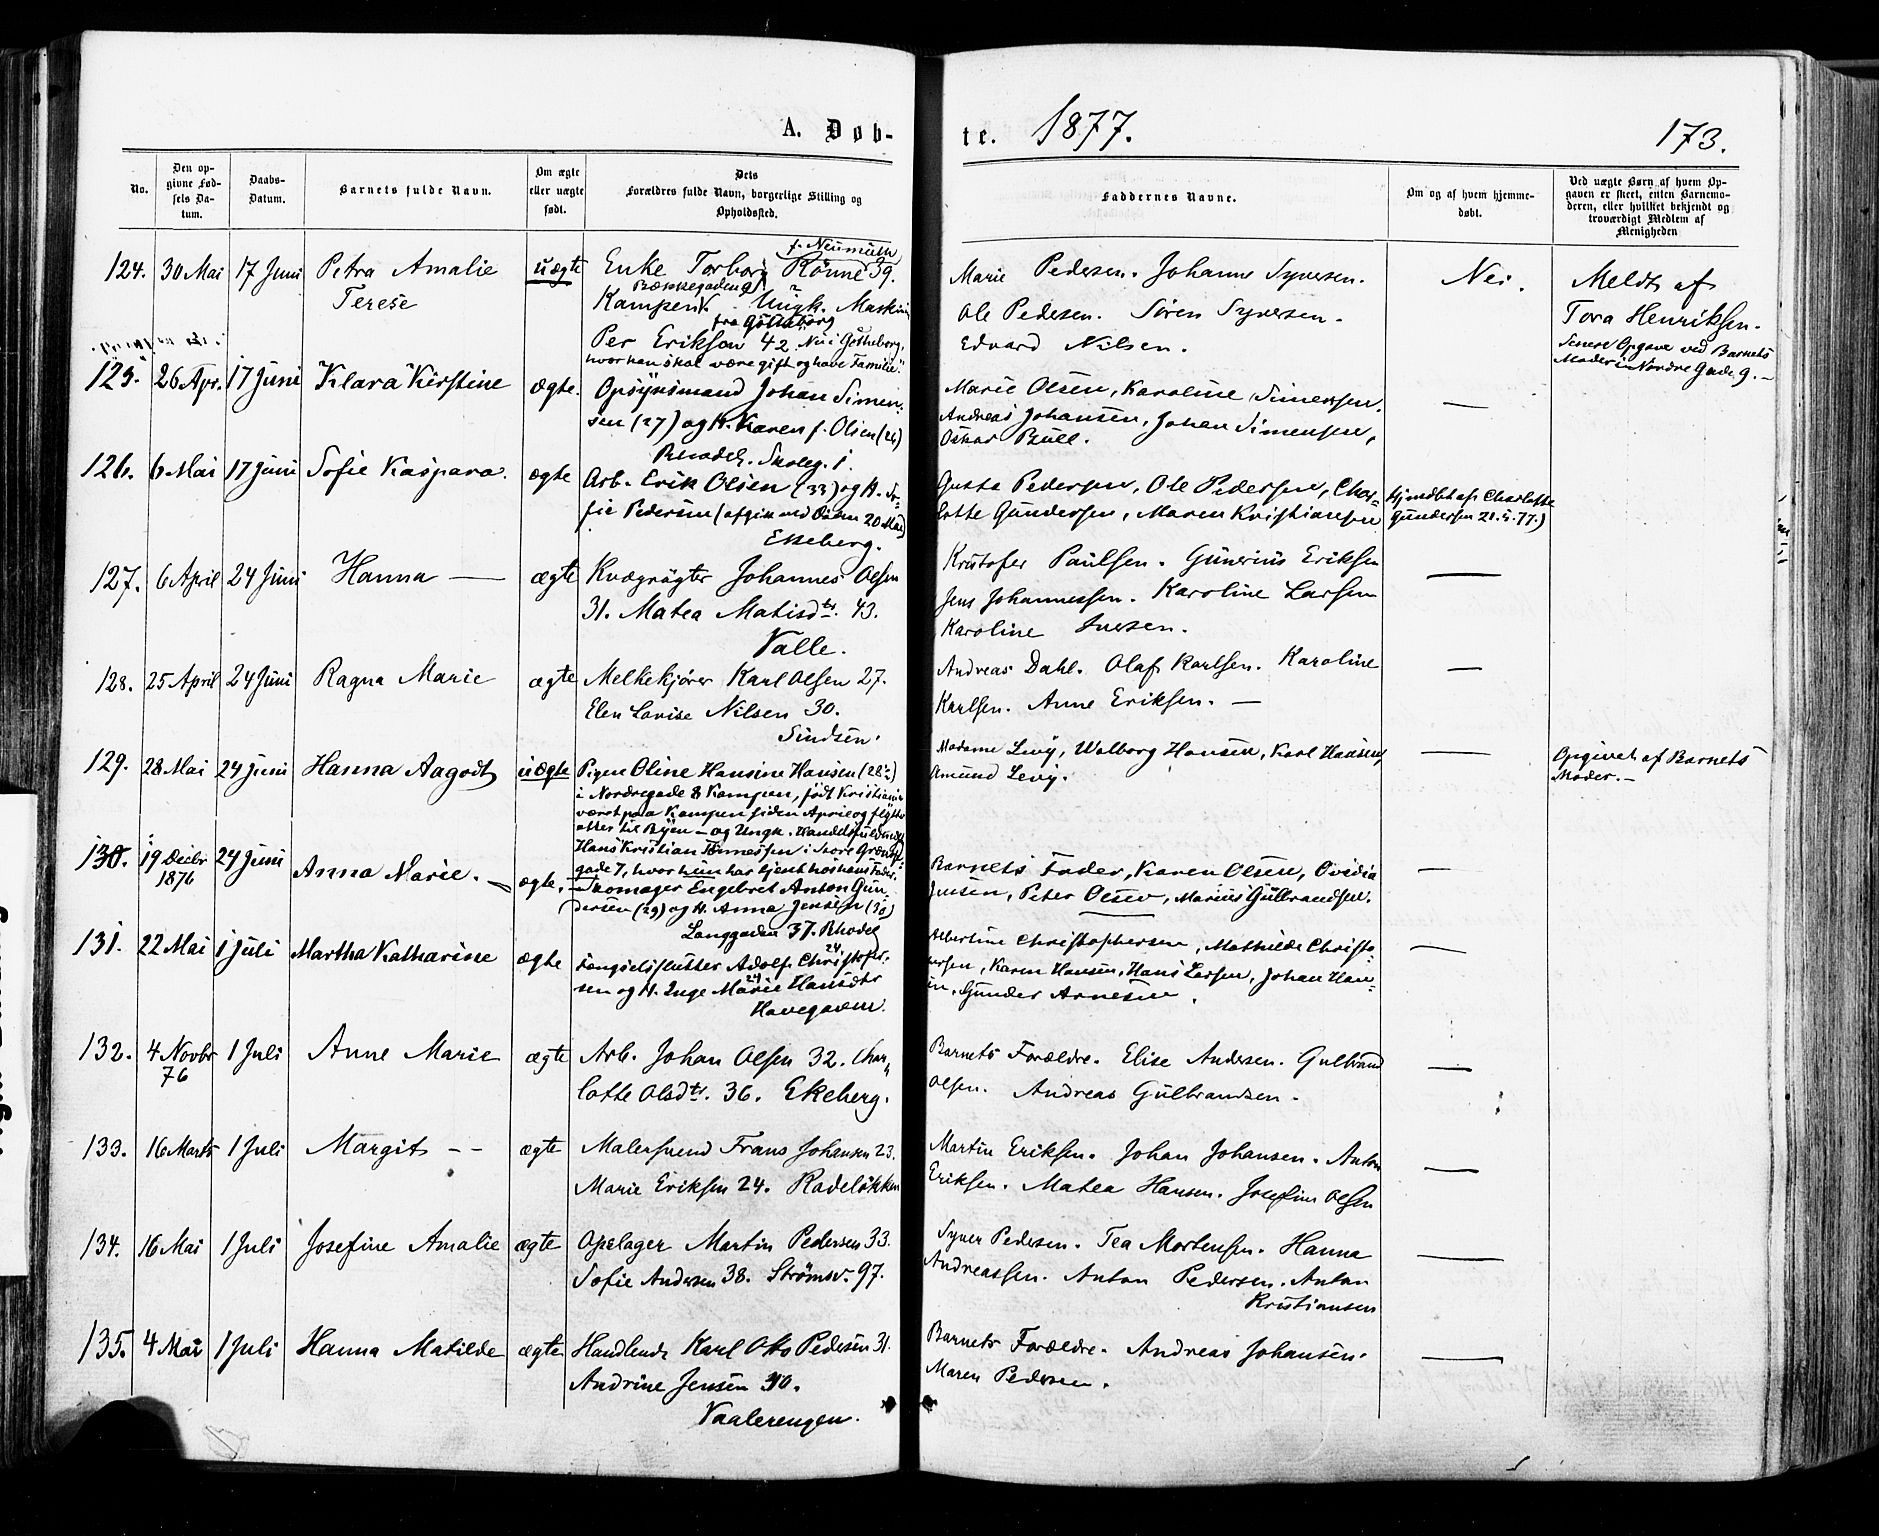 A. Døb-
te. 1877.
173.
No.
Den op-
givne Fød-
sels Da-
tum.
Daabs-
Datum.
Barnets fulde Navn.
Om ægte
eller uægte
født.
Dets
Forældres fulde Navn, borgerlige Stilling og
Opholdssted.
Faddernes Navne.
Om og af hvem hjemme-
døbt.
Ved uægte Børn af hvem Op-
gaven er skeet, enten Barnemo-
deren, eller hvilket bekjendt og
troværdigt Medlem af
Menigheden
124. 30 Mai 17 Juni Petra Amalie
Terese
uægte
f. Neumüller
Enke Torborg Rönne 39.
Bækkegaden 9
Kampen. Ungk. Maskin
fra Götheborg
Per Erikson 42. Nu i Gøtheborg,
hvor han skal være gift og have Familie."
Marie Pedersen. Johanne Syversen.
Ole Pedersen. Sören Syversen.
Edvard Nilsen.
Nei.
Meldt af
Tora Henriksen.
Senere Opgave ved Barnets
Moder i Nordre Gade 9. —
125. 26 Apr. 17 Juni Klara Kirstine
ægte.
Opsynsmand Johan Simen-
sen (27) og H. Karen f. Olsen (26)
Rhodel. Skoleg. 1.
Marie Olsen, Karoline Simensen,
Andreas Johansen, Johan Simensen,
Oskar Bull.
—
126. 6 Mai 17 Juni Sofie Kaspara.
ægte
Arb. Erik Olsen (33) og H. So-
fie Pedersen (afgik ved Døden 20 Mai)
Ekeberg.
Gusta Pedersen, Ole Pedersen, Char-
lotte Gundersen, Maren Kristiansen
Hjmdbt af Charlotte
Gundersen 21.5.77.)
127. 6 April 24 Juni Hanna —
ægte
Kvægrögter Johannes Olsen
31. Matea Matisdtr. 43.
Valle.
Kristofer Paulsen. Gunerius Eriksen
Jens Johannessen. Karoline Larsen
Karoline Iversen.
—
128. 25 April 24 Juni Ragna Marie
ægte
Melkekjører Karl Olsen 27.
Elen Lovise Nilsen 30.
Sindsen.
Andreas Dahl. Olaf Karlsen. Karoline
Karlsen. Anne Eriksen. —
—
129. 28 Mai 24 Juni Hanna Aagodt
uægte
Pigen Oline Hansine Hansen (28½)
i Nordregade 8 Kampen, født Kristiania
været paa Kampen siden April og flytter
atter til Byen — og Ungk. Handelsfuldmæg
Hans Kristian Tönnessen i Store Grændse-
gade 7, hvor hun har tjent hos hans Fader.
Madame Levy, Walborg Hansen, Karl Hansen,
Amund Levy.
—
Opgivet af Barnets
Moder. —
130. 19 Decbr 1876 24 Juni Anna Marie. —
ægte.
Skomager Engebret Anton Gun-
dersen (29) og H. Anna Jensen (30)
Langgaden 37. Rhodel
Barnets Fader, Karen Olsen, Ovidia
Jensen, Peter Olsen, Marius Gulbrandsen.
131. 22 Mai 1 Juli Martha Katharine
ægte
Fængselsslutter Adolf Christofer-
24
sen og H. Inge Marie Hansdtr
24
Havegaden.
Albertine Christophersen, Mathilde Christo-
fersen, Karen Hansen, Hans Larsen, Johan Han-
sen, Gunder Arnesen.
—
132. 4 Novbr 76 1 Juli Anne Marie
ægte
Arb. Johan Olsen 32. Char-
lotte Olsdtr. 36. Ekeberg.
Barnets Forældre. Elise Andersen. Gulbrand
Olsen. Andreas Gulbrandsen.
—
133. 16 Marts 1 Juli Margit - -
ægte
Malersvend Frans Johansen 23.
Marie Eriksen 24. Radeløkken
Martin Eriksen. Johan Johansen. Anton
Eriksen. Matea Hansen. Josefine Olsen
—
134. 16 Mai 1 Juli Josefine Amalie
ægte
Opslager Martin Pedersen 33.
Sofie Andersen 38. Strømsv. 97.
Syver Pedersen. Tea Mortensen. Hanna
Andreassen. Anton Pedersen. Anton
Kristiansen
—
135. 4 Mai 1 Juli Hanna Matilde
ægte
Handlende Karl Otto Pedersen 31.
Andrine Jensen 30.
Vaalerengen.
Barnets Forældre. Andreas Johansen.
Maren Pedersen.
—